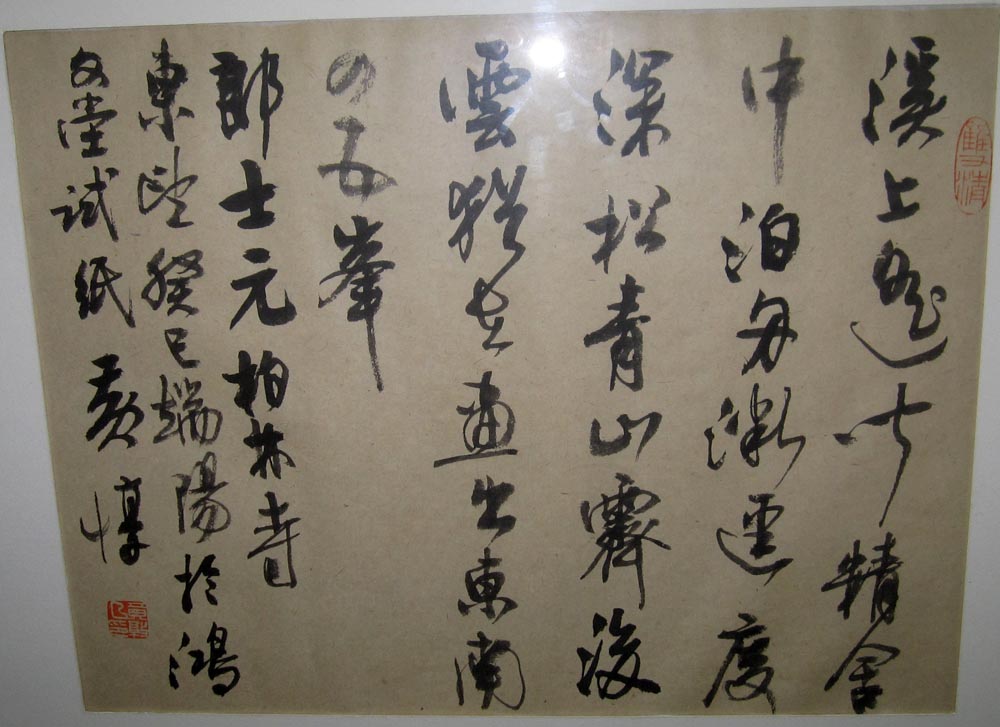 溪上遙聞精舍
中泊舟微逕度
深松青山霽後
雲猶在畫出東南
四五峯
郎士元柏林寺
東望癸巳端陽於鴻
文堂試紙黃惇